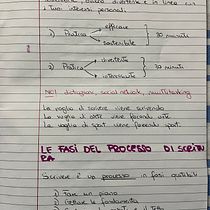 i tuoi interessi personali.
1) Pratica efficace
sostenibile
30 minuti
2) Pratica divertente
interessante
30 minuti
NO! distrazioni, social network, multitasking
La voglia di scrivere viene scrivendo
La voglia di arte viene facendo arte
La voglia di sport viene facendo sport.
LE FASI DEL PROCESSO DI SCRITTU
RA
Scrivere è un processo in fasi
1) Fare un piano
2) Gettare le fondamenta